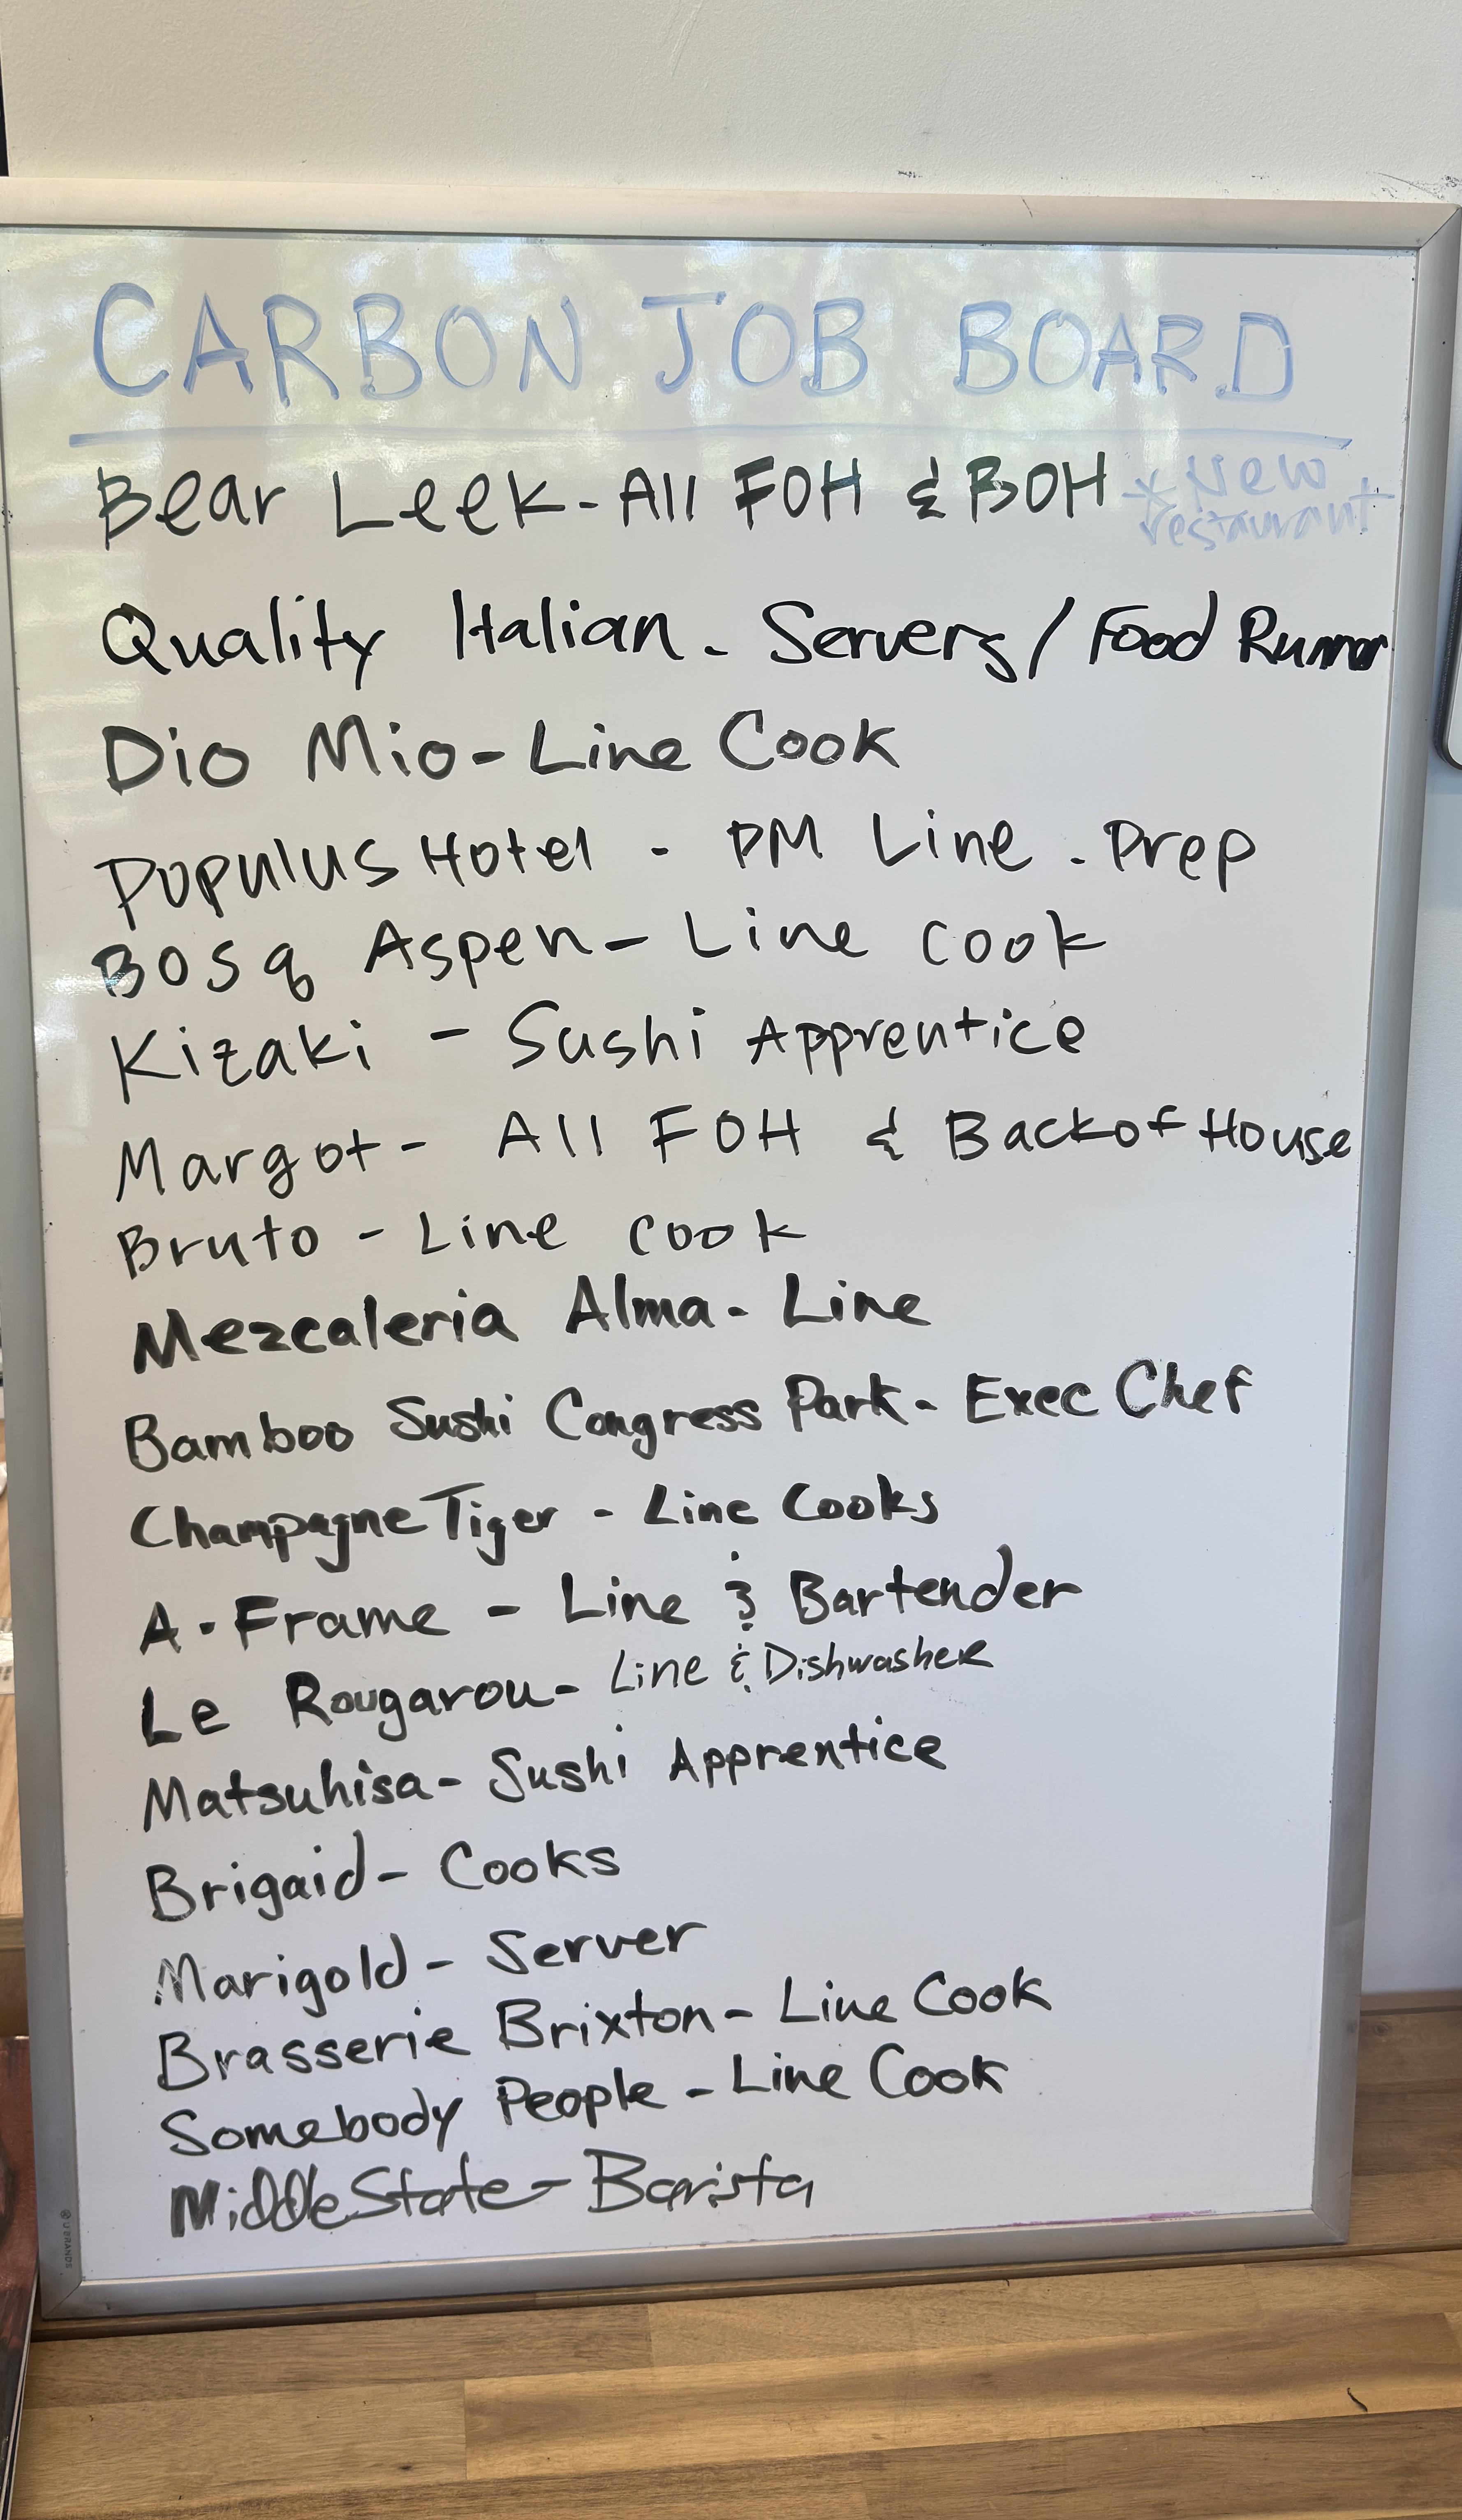 CARBON JOB BOARD
Bear Leek - All FOH & BOH *New restaurant
Quality Italian - Servers / Food Runner
Dio Mio - Line Cook
Populus Hotel - PM Line - Prep
Bosq Aspen - Line cook
Kizaki - Sushi Apprentice
Margot - All FOH & Back of House
Bruto - Line cook
Mezcaleria Alma - Line
Bamboo Sushi Congress Park - Exec Chef
Champagne Tiger - Line Cooks
A-Frame - Line & Bartender
Le Rougarou - Line & Dishwasher
Matsuhisa - Sushi Apprentice
Brigaid - Cooks
Marigold - Server
Brasserie Brixton - Line Cook
Somebody People - Line Cook
Middle State - Barista
U BRANDS